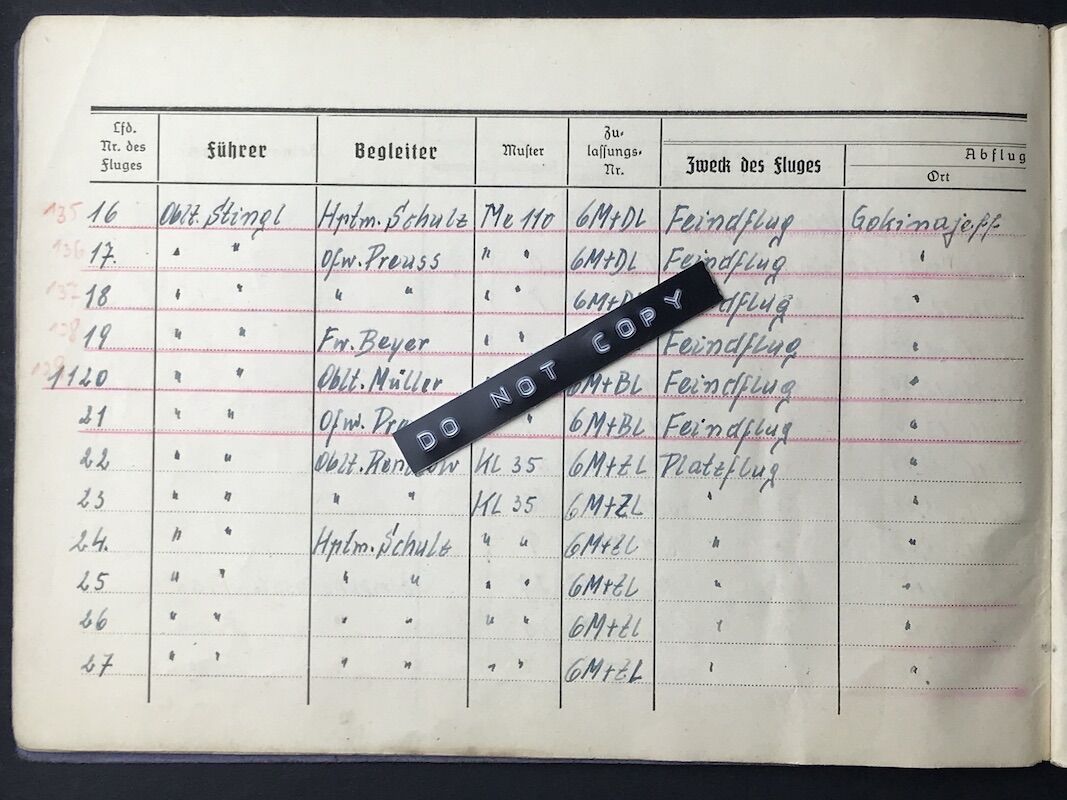 Lfd. Nr. des Fluges Führer Begleiter Muster Zu-lassungs-Nr. Zweck des Fluges Abflug Ort
135 16 Oblt. Stingl Hptm. Schulz Me 110 6M+DL Feindflug
136 17. " " Ofw. Preuss " " 6M+DL Feindflug "
137 18 " " " " " " "
138 19 " " Fw. Beyer " " Feindflug "
1120 " " Oblt. Müller 6M+BL Feindflug "
21 " " Ofw. " 6M+BL Feindflug "
22 " " Oblt. Kl 35 6M+ZL Platzflug "
23 " " " " Kl 35 6M+ZL " "
24. " " Hptm. Schulz " " 6M+ZL " "
25 " " " " " " 6M+ZL " "
26 " " " " " " 6M+ZL " "
27 " " " " " " 6M+ZL " "
DO NOT COPY